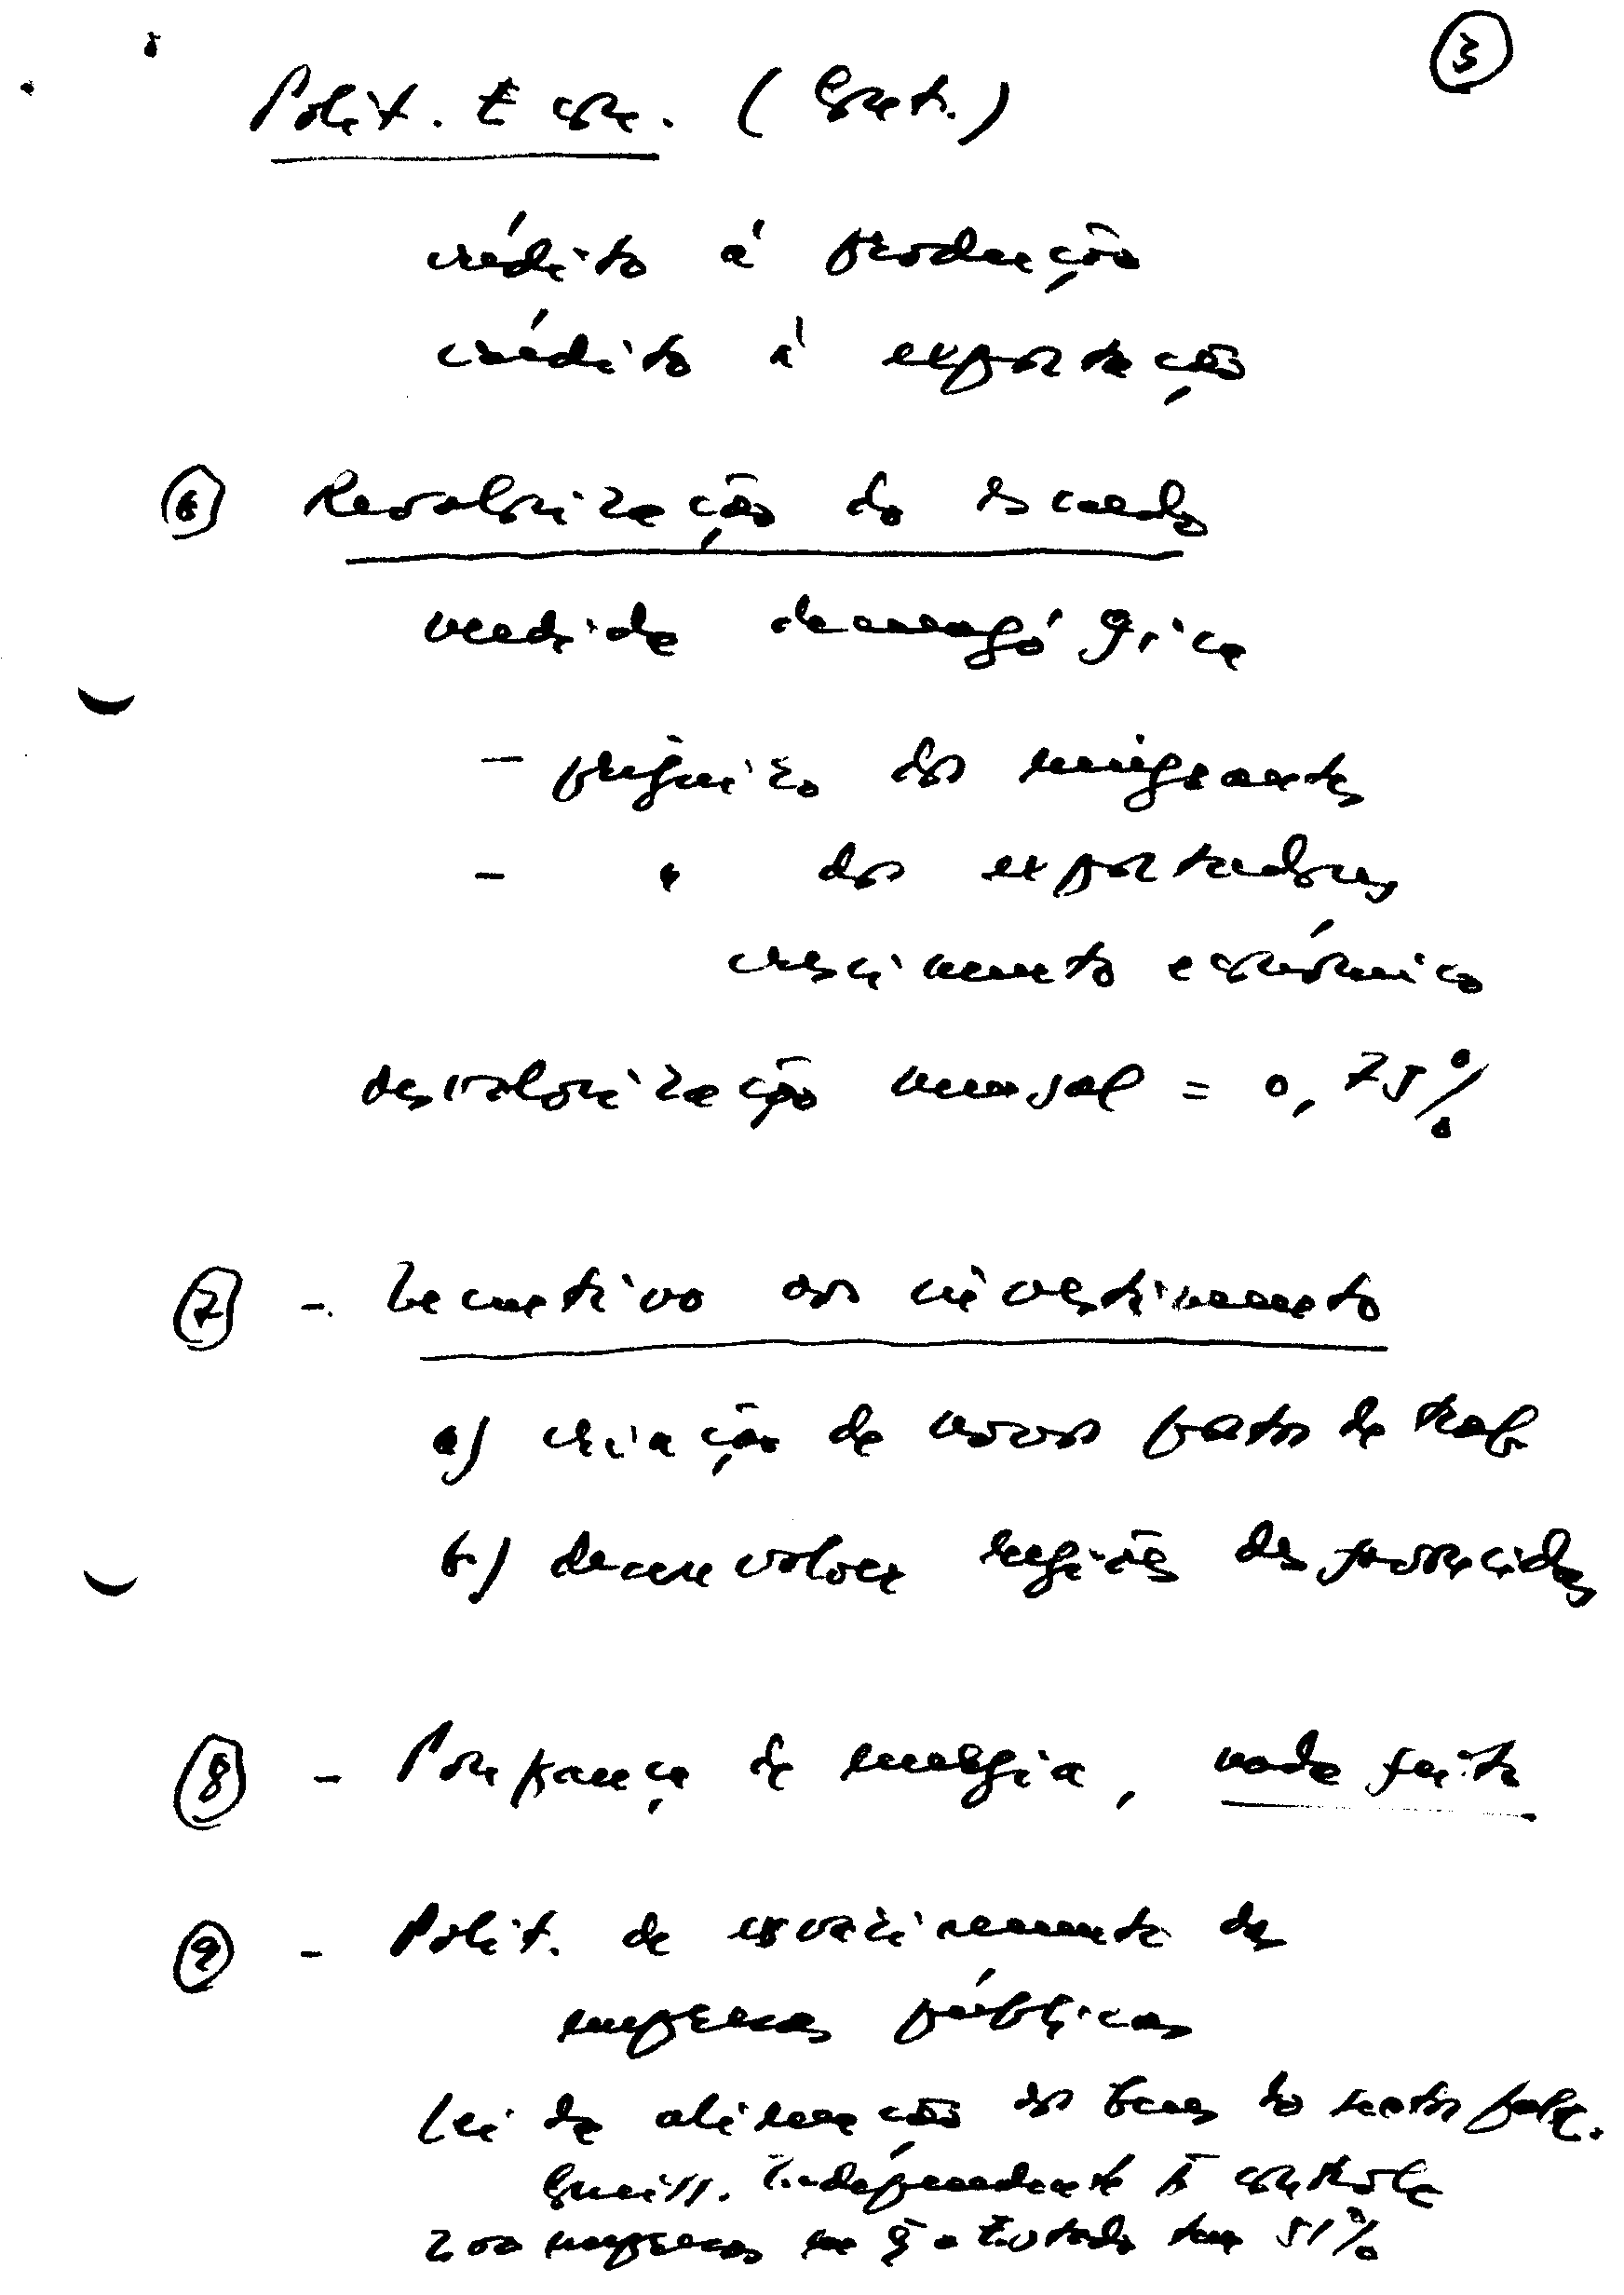 3
Polit. Econ. (Cont.)
crédito à produção
crédito à exportação
6 Revalorização do Escudo
medida demagógica
- prejuízo dos emigrantes
- " dos exportadores
crescimento económico
desvalorização mensal = 0,75%
7 - Incentivo aos investimento
a) criação de novos postos de trab
b) desenvolver regiões desfavorecidas
8 - Poupança de energia, nada feito
9 - Polit. de esvaziamento das
empresas públicas
Lei da alienação dos bens do sector públ.
Comiss. Independente p/ controle
200 empresas em q o Estado tem 51%